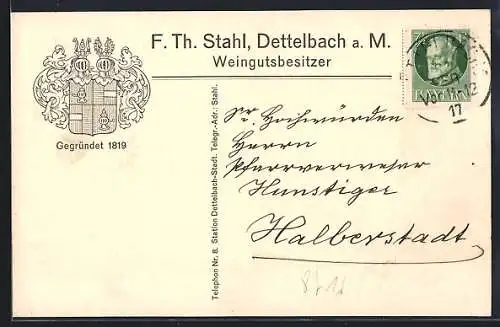 F. Th. Stahl, Dettelbach a. M.
Weingutsbesitzer
Gegründet 1819
Telephon Nr. 8. Station Dettelbach-Stadt. Telegr.-Adr.: Stahl.
Vor 11-12
17
Sr. Hochwürden
Herrn
Pfarrverweser
Hunstiger
Halberstadt